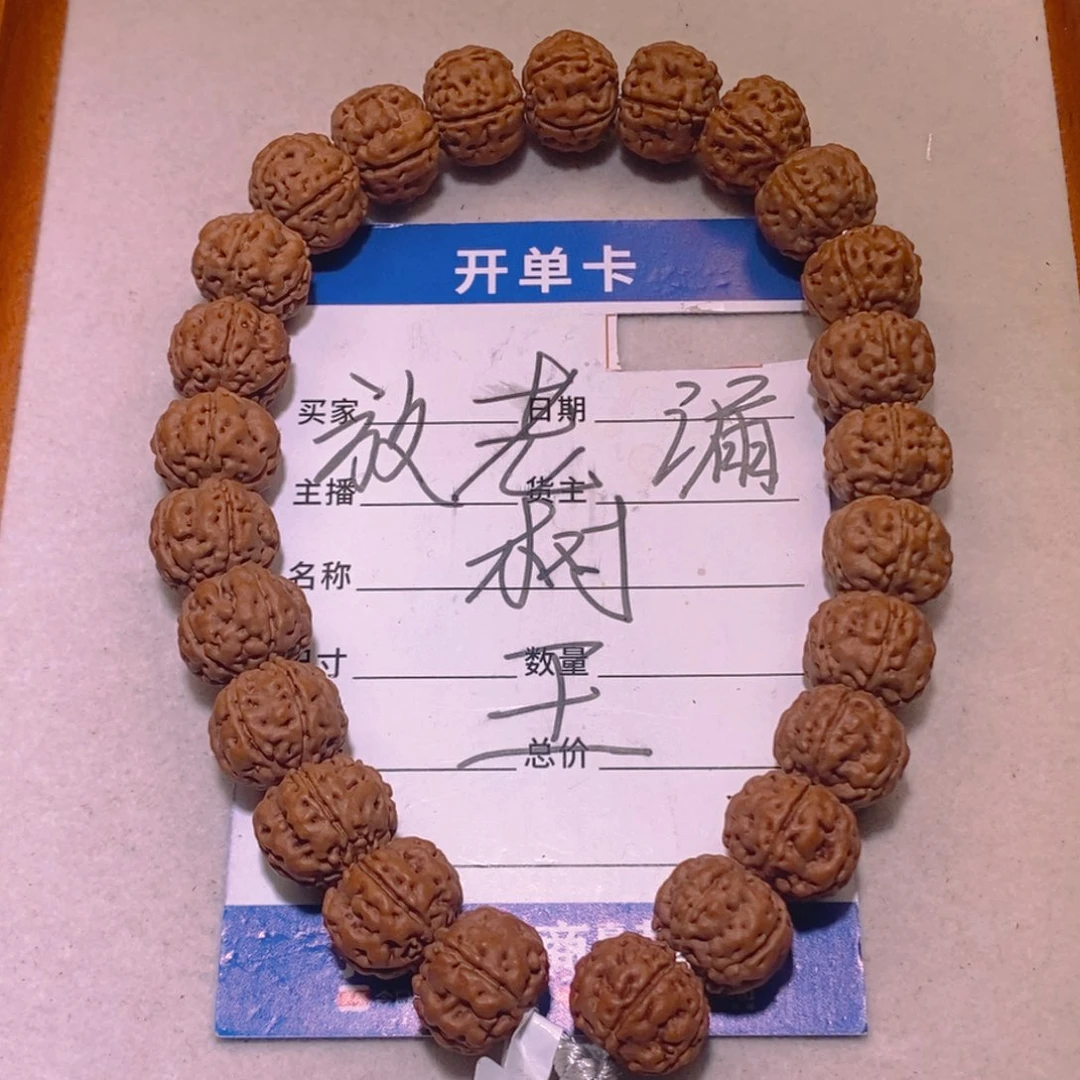 开单卡
买家 日期
放老漏
主播 货主
树
名称
寸 数量
王
总价